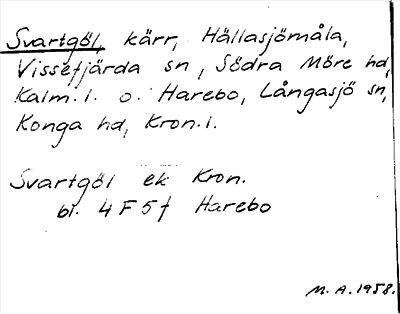 Svartgöl, kärr, Hällasjömåla,
Vissefjärda sn, Södra Möre hd,
Kalm. l. o. Harebo, Långasjö sn,
Konga hd, Kron. l.
Svartgöl ek Kron.
bl. 4 F 5 f Harebo
M. A. 1958.